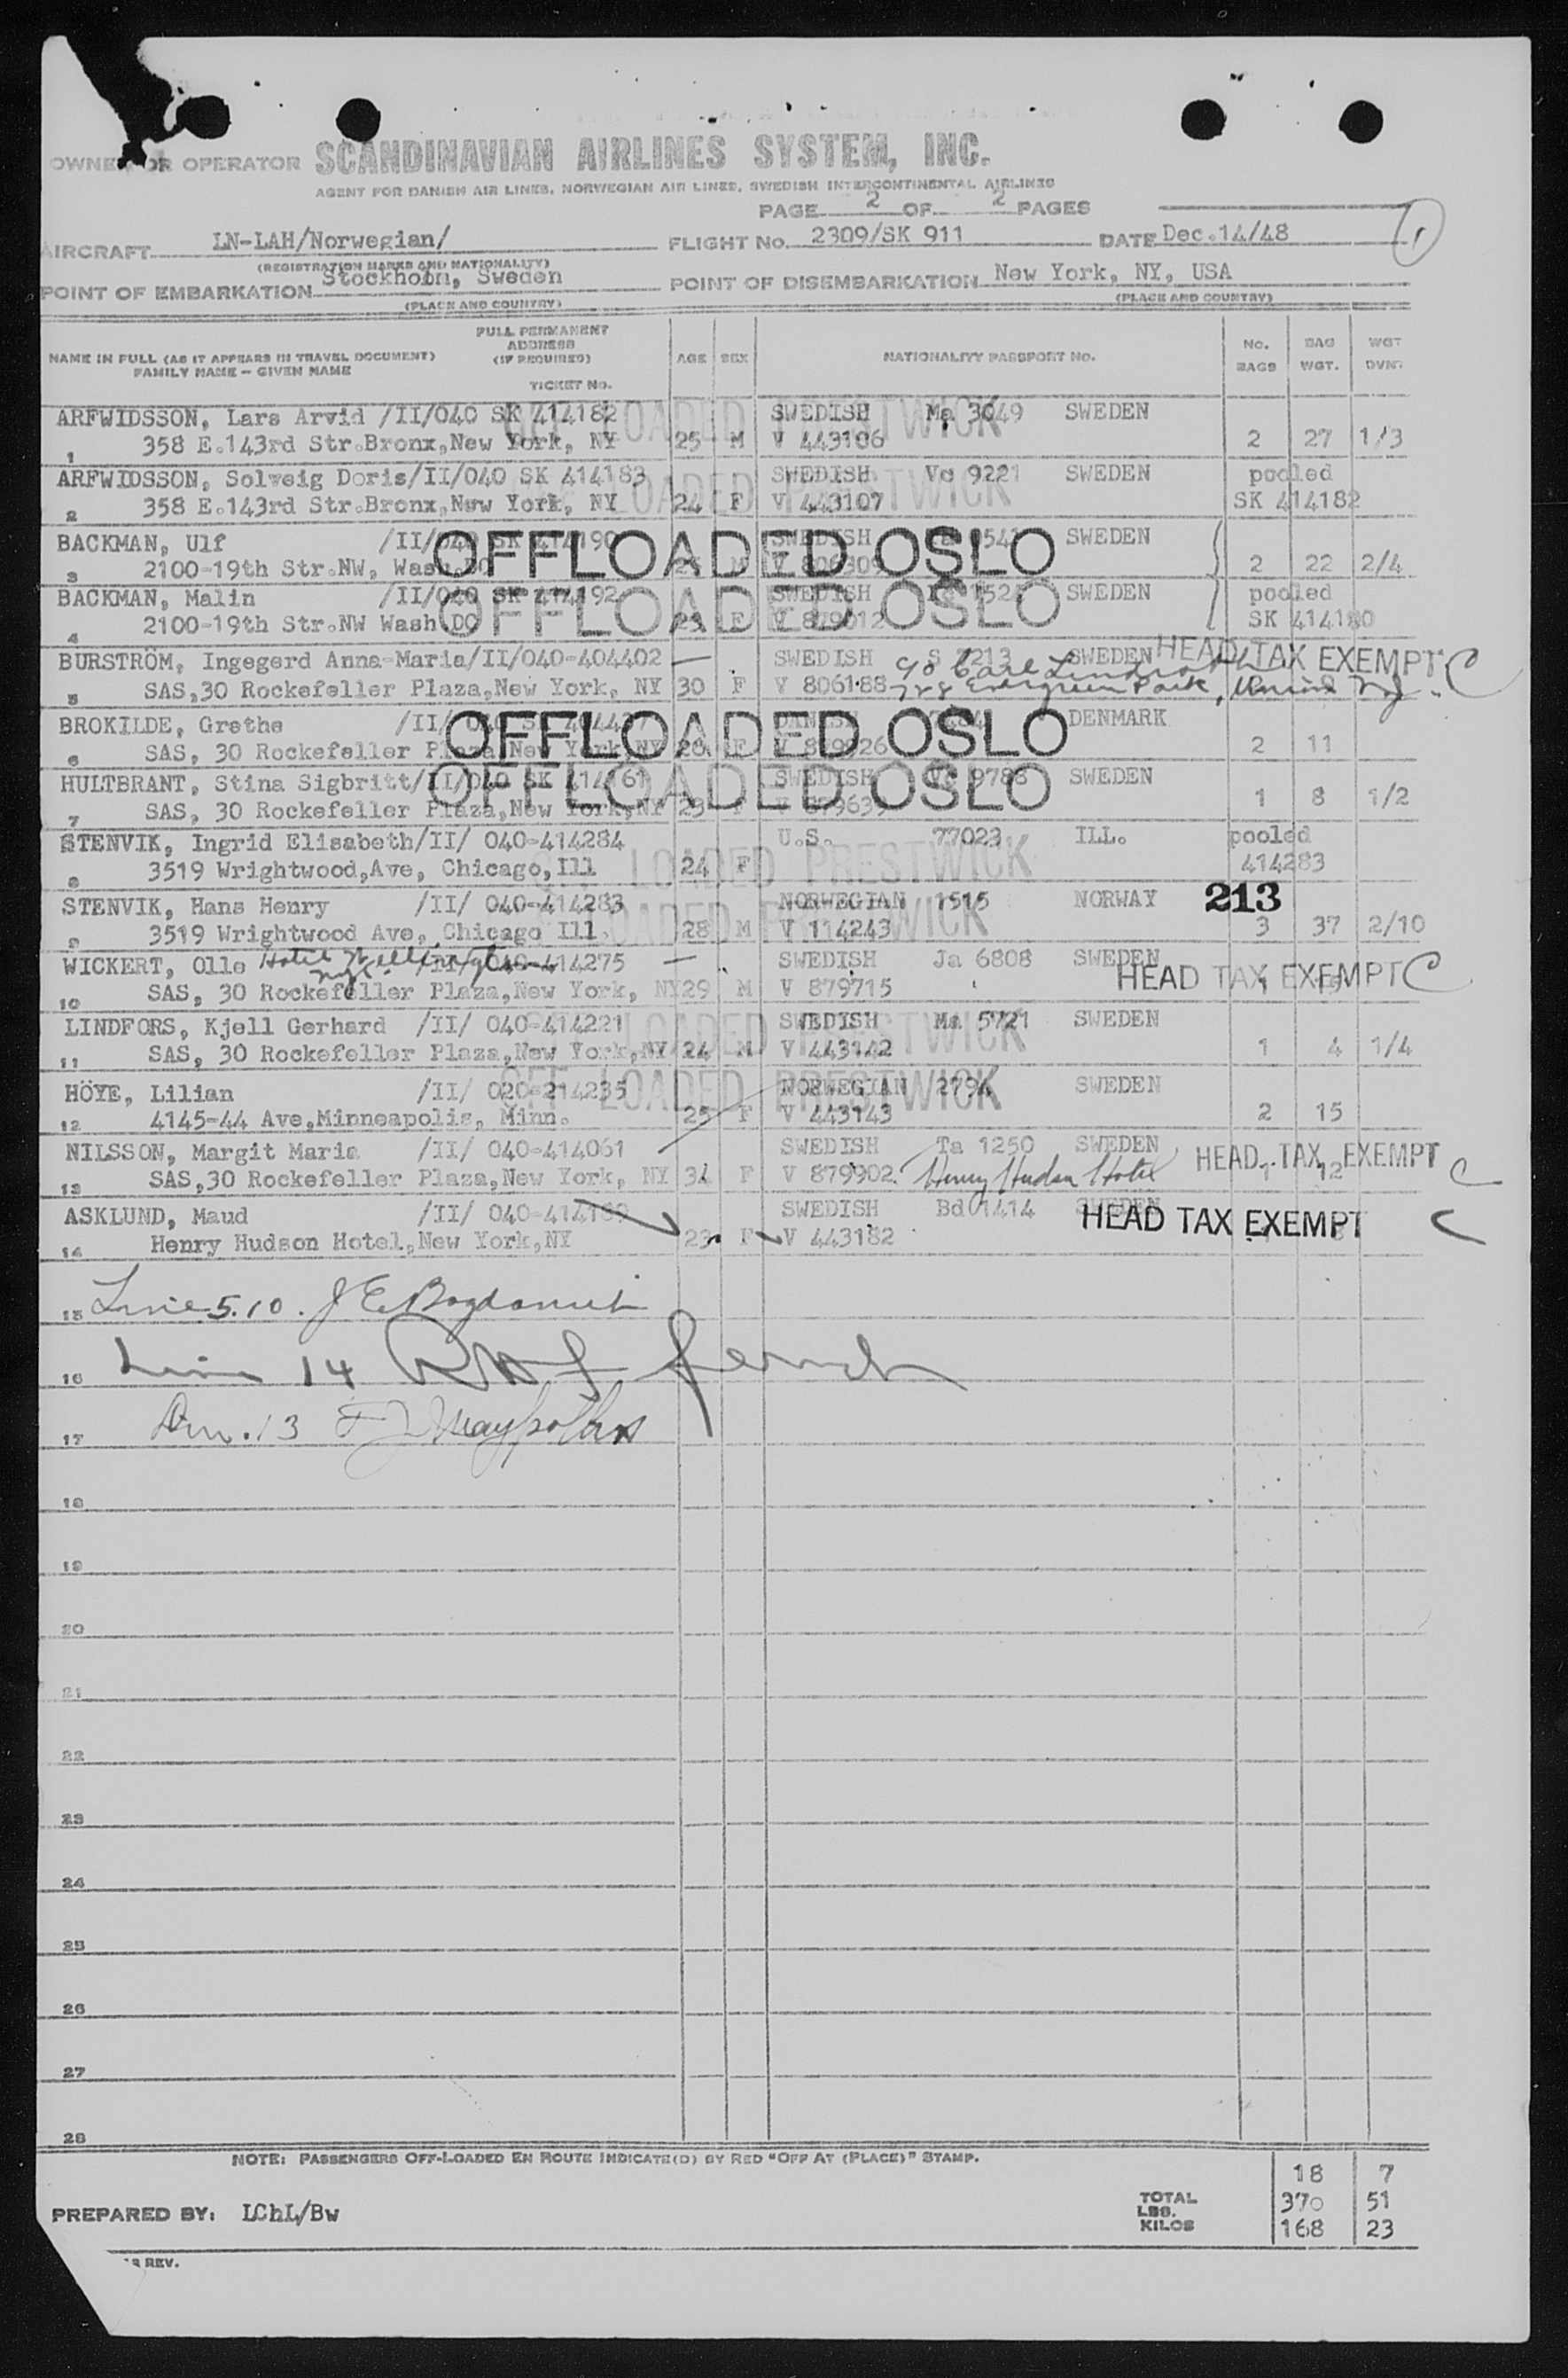 OWNER OR OPERATOR SCANDINAVIAN AIRLINES SYSTEM, INC.
AGENT FOR DANISH AIR LINES, NORWEGIAN AIR LINES, SWEDISH INTERCONTINENTAL AIRLINES
PAGE 2 OF 2 PAGES
AIRCRAFT LN-LAH/Norwegian/ FLIGHT No. 2309/SK 911 DATE Dec.14/48
(REGISTRATION MARKS AND NATIONALITY)
POINT OF EMBARKATION Stockholm, Sweden POINT OF DISEMBARKATION New York, NY, USA
(PLACE AND COUNTRY) (PLACE AND COUNTRY)
NAME IN FULL (AS IT APPEARS IN TRAVEL DOCUMENT) FAMILY NAME – GIVEN NAME FULL PERMANENT ADDRESS (IF REQUIRED) TICKET No. AGE SEX NATIONALITY PASSPORT No. No. BAGS BAG WGT. WGT OVR.
ARFWIDSSON, Lars Arvid /II/040 SK 414182 SWEDISH Ma 3049 SWEDEN
1 358 E.143rd Str.Bronx,New York, NY 25 M V 443106 2 27 1/3
OFF LOADED PRESTWICK
ARFWIDSSON, Solveig Doris/II/040 SK 414183 SWEDISH Vc 9221 SWEDEN pooled
2 358 E.143rd Str.Bronx,New York, NY 24 F V 443107 SK 414182
LOADED PRESTWICK
BACKMAN, Ulf /II/040 SK 414190 SWEDISH SWEDEN
3 2100-19th Str.NW, Wash.DC M V 806309 2 22 2/4
OFFLOADED OSLO
BACKMAN, Malin /II/040 SK 414192 SWEDISH SWEDEN pooled
4 2100-19th Str.NW Wash.DC F V 879012 SK 414190
OFFLOADED OSLO
BURSTRÖM, Ingegerd Anna-Maria/II/040-404402 SWEDISH S 7213 SWEDEN HEAD TAX EXEMPT C
5 SAS,30 Rockefeller Plaza,New York, NY 30 F V 806188 c/o Carl
Evergreen Park, Union NJ.
BROKILDE, Grethe /II/ DANISH DENMARK
6 SAS, 30 Rockefeller Plaza,New York,NY 28 F V 2 11
OFFLOADED OSLO
HULTBRANT, Stina Sigbritt/II/040 SK 414161 SWEDISH Vc 9788 SWEDEN
7 SAS, 30 Rockefeller Plaza,New York,NY 23 F V 1 8 1/2
OFFLOADED OSLO
STENVIK, Ingrid Elisabeth/II/ 040-414284 U.S. 77023 ILL. pooled
8 3519 Wrightwood,Ave, Chicago,Ill 24 F 414283
LOADED PRESTWICK
STENVIK, Hans Henry /II/ 040-414283 NORWEGIAN 1515 NORWAY 213
9 3519 Wrightwood Ave, Chicago Ill. 28 M V 114243 3 37 2/10
LOADED PRESTWICK
WICKERT, Olle Hotel Wellington /II/ 040-414275 SWEDISH Ja 6808 SWEDEN
NYC
10 SAS, 30 Rockefeller Plaza,New York, NY 29 M V 879715 HEAD TAX EXEMPT C
LINDFORS, Kjell Gerhard /II/ 040-414221 SWEDISH Ma 5721 SWEDEN
11 SAS, 30 Rockefeller Plaza,New York,NY 24 M V 443142 1 4 1/4
LOADED PRESTWICK
HÖYE, Lilian /II/ 020-214235 NORWEGIAN 2794 SWEDEN
12 4145-44 Ave,Minneapolis, Minn. 25 F V 443143 2 15
OFF LOADED PRESTWICK
NILSSON, Margit Maria /II/ 040-414061 SWEDISH Ta 1250 SWEDEN HEAD TAX EXEMPT C
13 SAS,30 Rockefeller Plaza,New York, NY 34 F V 879902 Henry Hudson Hotel 1 12
ASKLUND, Maud /II/ 040-414189 SWEDISH Bd 1414 SWEDEN HEAD TAX EXEMPT C
14 Henry Hudson Hotel,New York,NY 23 F V 443182
15 Line 5.10.
16 Line 14
17 13
18
19
20
21
22
23
24
25
26
27
28
NOTE: PASSENGERS OFF-LOADED EN ROUTE INDICATE(D) BY RED "OFF AT (PLACE)" STAMP.
18 7
TOTAL LBS. 370 51
PREPARED BY: LChL/Bw KILOS 168 23
REV.